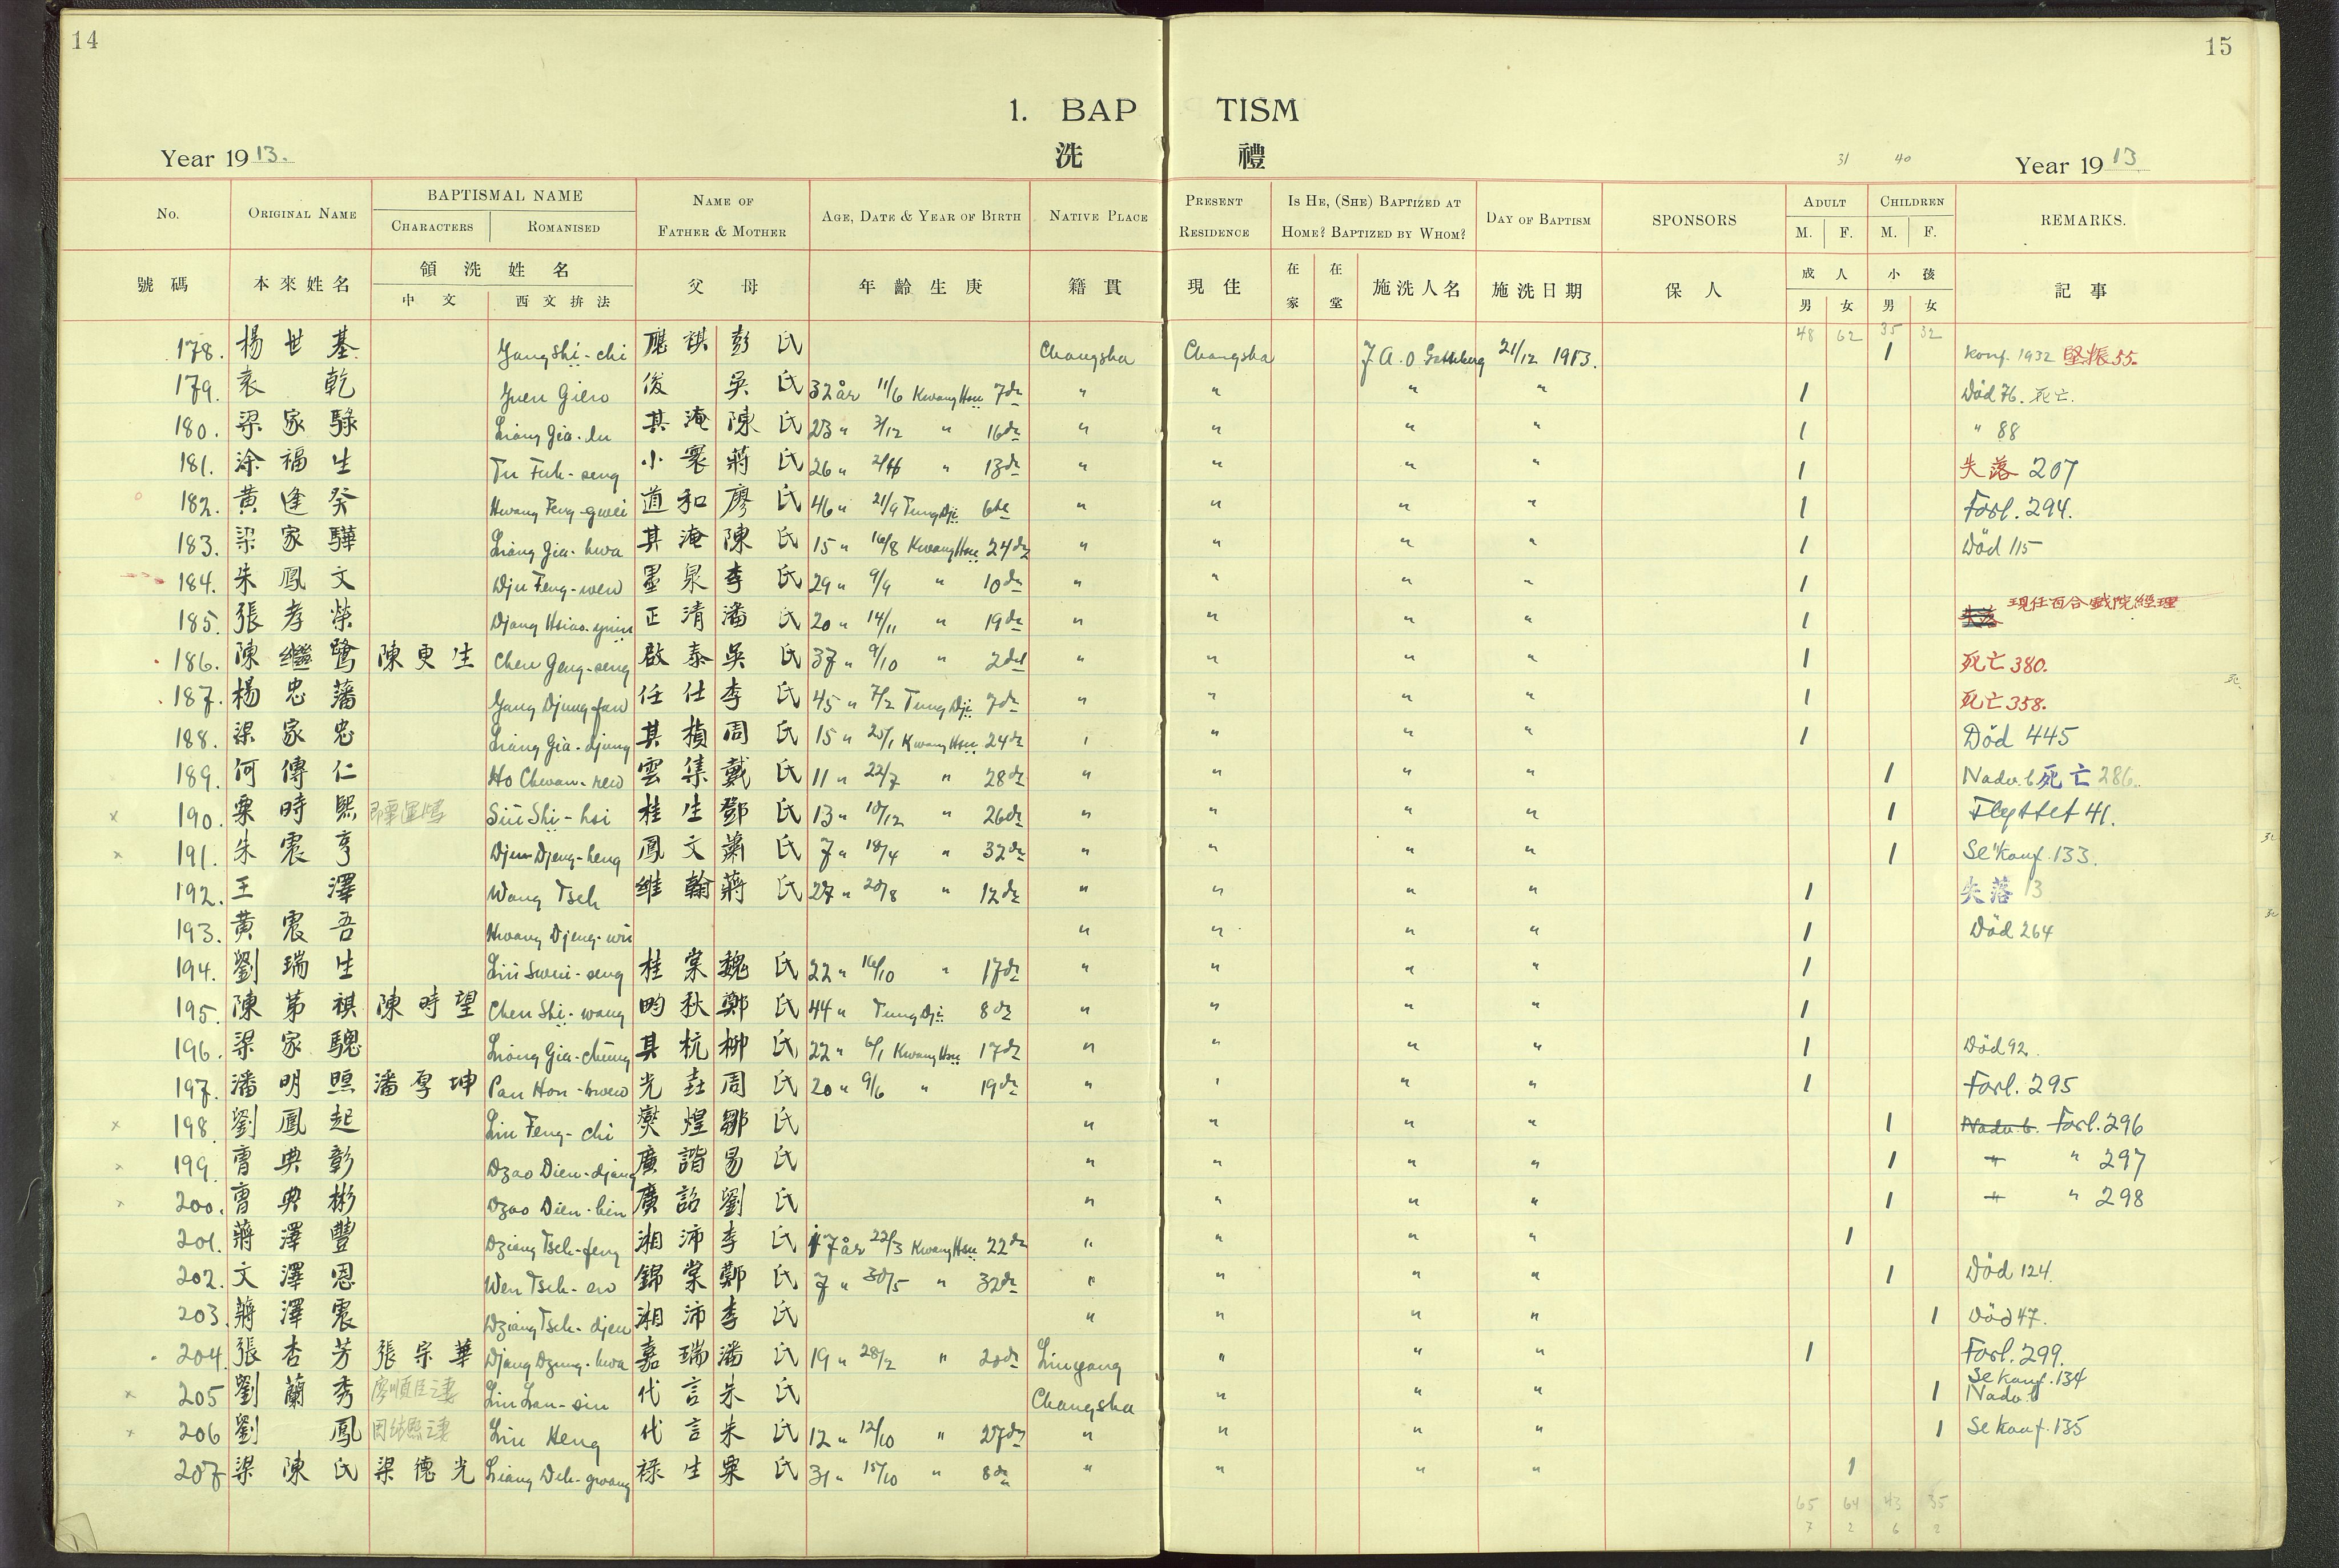 14
15
1. BAP TISM
洗 禮
Year 19 13.
31 40
Year 19 13
No. ORIGINAL NAME BAPTISMAL NAME CHARACTERS ROMANISED NAME OF FATHER & MOTHER AGE, DATE & YEAR OF BIRTH NATIVE PLACE PRESENT RESIDENCE IS HE, (SHE) BAPTIZED AT HOME? BAPTIZED BY WHOM? DAY OF BAPTISM SPONSORS ADULT M. F. CHILDREN M. F. REMARKS.
號碼 本來姓名 領洗姓名 中文 西文拚法 父母 年齡生庚 籍貫 現住 在家 在堂 施洗人名 施洗日期 保人 成人 男 女 小孩 男 女 記事
48 62 35 32
178. 楊世基 Yang Shi-chi 應祺 彭氏 Changsha Changsha J A. O Gotteberg 21/12 1913. 1 Konf. 1932 55.
179. 袁乾 Yuen Gien 俊 吳氏 32 år 11/6 Kwang Hsu 7de " " " " 1 Död 76. 死亡.
180. 梁家騄 Liang Gia-lu 其淹 陳氏 23 " 3/12 " 16de " " " " 1 " 88
181. 涂福生 Tu Fuh-seng 小寰 蔣氏 26 " " 13de " " " " 1 失落 207
182. 黃逢癸 Hwang Feng-gwei 道和 廖氏 46 " 21/9 Tung Dji 6de " " " " 1 Forl. 294.
183. 梁家驊 Liang Gia-hwa 其淹 陳氏 15 " 16/8 Kwang Hsu 24de " " " " 1 Död 115
184. 朱鳳文 Dju Feng-wen 墨泉 李氏 29 " 9/9 " 10de " " " " 1
185. 張孝榮 Djang Hsiao-yuin 正清 潘氏 20 " 14/11 " 19de " " " " 1 失落 現任百合戲院經理
186. 陳繼鷺 陳更生 Chen Geng-seng 啟泰 吳氏 37 " 9/10 " 2det " " " " 1 死亡 380.
187. 楊忠藩 Yang Djung fan 任仕 李氏 45 " 7/2 Tung Dji 7de " " " " 1 死亡 358.
188. 梁家忠 Liang Gia-djung 其楨 周氏 15 " 25/1 Kwang Hsu 24de " " " " 1 Död 445
189. 何傳仁 Ho Chwan-ren 雲集 戴氏 11 " 22/7 " 28de " " " " 1 Nadv. b 死亡 286.
190. 粟時熙 Sü Shi-hsi 桂生 鄧氏 13 " 10/12 " 26de " " " " 1 Flyttet 41.
191. 朱震亨 Dju Djeng-heng 鳳文 蕭氏 7 " 18/4 " 32de " " " " 1 Se Konf. 133.
192. 王澤 Wang Tseh 維翰 蔣氏 27 " 20/8 " 12de " " " " 1 失落 13
193. 黃震吾 Hwang Djeng-wu " " " " 1 Död 264
194. 劉瑞生 Liu Swei-seng 桂棠 魏氏 22 " 16/10 " 17de " " " " 1
195. 陳第祺 陳時望 Chen Shi-wang 畇秋 鄭氏 44 " Tung Dji 8de " " " " 1
196. 梁家驄 Liang Gia-chung 其杭 柳氏 22 " 6/1 Kwang Hsu 17de " " " " 1 Död 92.
197. 潘明照 潘厚坤 Pan Hou-kwen 光垚 周氏 20 " 9/6 " 19de " " " " 1 Forl. 295
198. 劉鳳起 Liu Feng-chi 爕煌 鄒氏 " " " " 1 Nadv. b. Forl. 296
199. 曹典彰 Dzao Dien-djang 廣諧 易氏 " " " " 1 " " 297
200. 曹典彬 Dzao Dien-bin 廣詔 劉氏 " " " " 1 " " 298
201. 蔣澤豐 Dziang Tseh-feng 湘沛 李氏 17 år 22/3 Kwang Hsu 22de " " " " 1
202. 文澤恩 Wen Tseh-en 錦棠 鄭氏 7 " 30/5 " 32de " " " " 1 Död 124.
203. 蔣澤震 Dziang Tseh-djen 湘沛 李氏 " " " " 1 Död 47.
204. 張杏芳 張宗華 Djang Dzung-hwa 嘉瑞 潘氏 19 " 28/2 " 20de Liuyang " " " 1 Forl. 299.
205 劉蘭秀 廖順臣之妻 Liu Lan-siu 代言 朱氏 Changsha " " " 1 Se Konf. 134 Nadv. b
206 劉鳳 Liu Heng 代言 朱氏 12 " 12/10 " 27de " " " " 1 Se Konf. 135
207 梁陳氏 梁德光 Liang Deh-gwang 祿生 粟氏 31 " 15/10 " 8de " " " " 1
65 64 43 35
7 2 6 2